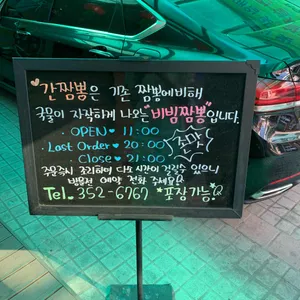 간짬뽕은 기존 짬뽕에비해
국물이 자작하게 나오는 "비빔짬뽕"입니다.
· OPEN ♥ 11:00
· Last Order ♥ 20:00
· Close ♥ 21:00
존맛
주문즉시 조리하여 다소 시간이 걸릴수 있으니
방문전 예약 전화 주세요
Tel. 352-6767 *포장가능!